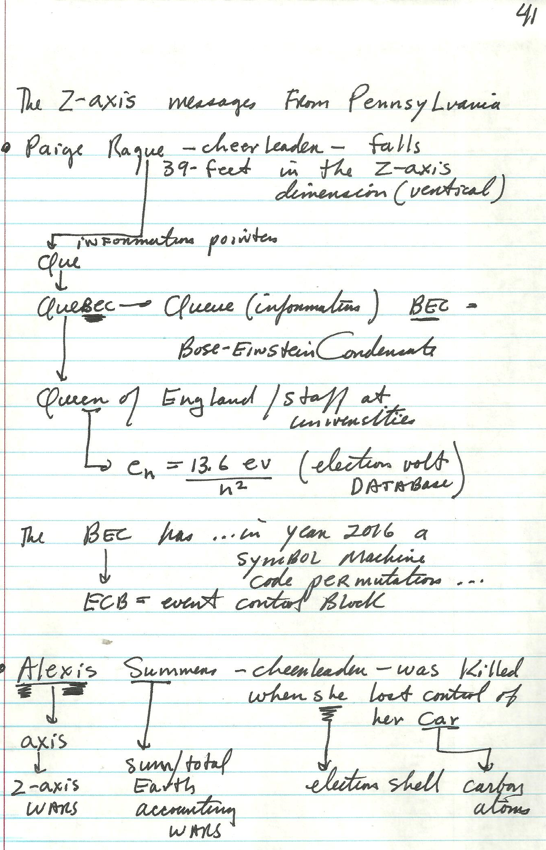 41
The Z-axis messages From Pennsylvania
• Paige Rague - cheerleader - falls
39-feet in the Z-axis
dimension (vertical)
information pointers
Que
QueBEC → Queue (information) BEC =
Bose-Einstein Condensate
Queen of England / staff at
universities
en = 13.6 ev / n² (electron volt
DATABase)
The BEC has ... in year 2016 a
symBOL Machine
code permutation ...
ECB = event control Block
• Alexis Summers - cheerleader - was killed
when she lost control of
her Car
axis
sum/total
Z-axis Earth electron shell carbon
WARS accounting atoms
WARS